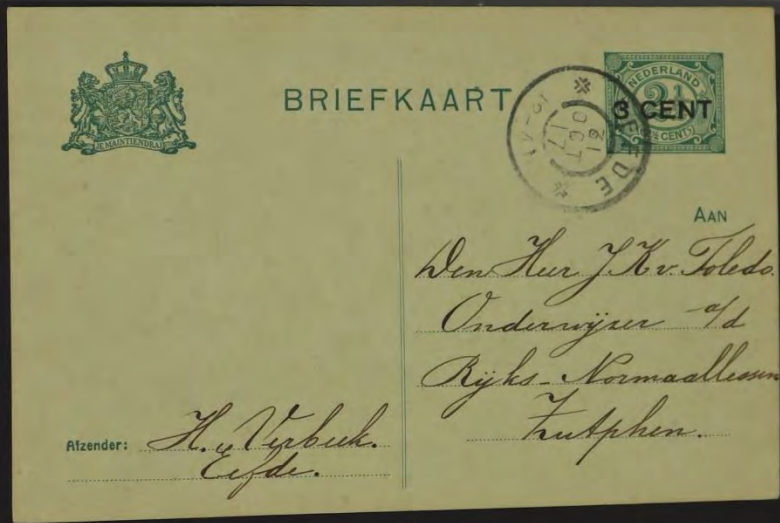 JE MAINTIENDRAI
BRIEFKAART
NEDERLAND
2½
3 CENT
(2½ CENT)
EEFDE
12
OCT
17
AAN
Den Heer J. K. v. Toledo.
Onderwijzer a/d
Rijks-Normaallessen
Zutphen.
Afzender: H. v Verbeek.
Eefde.